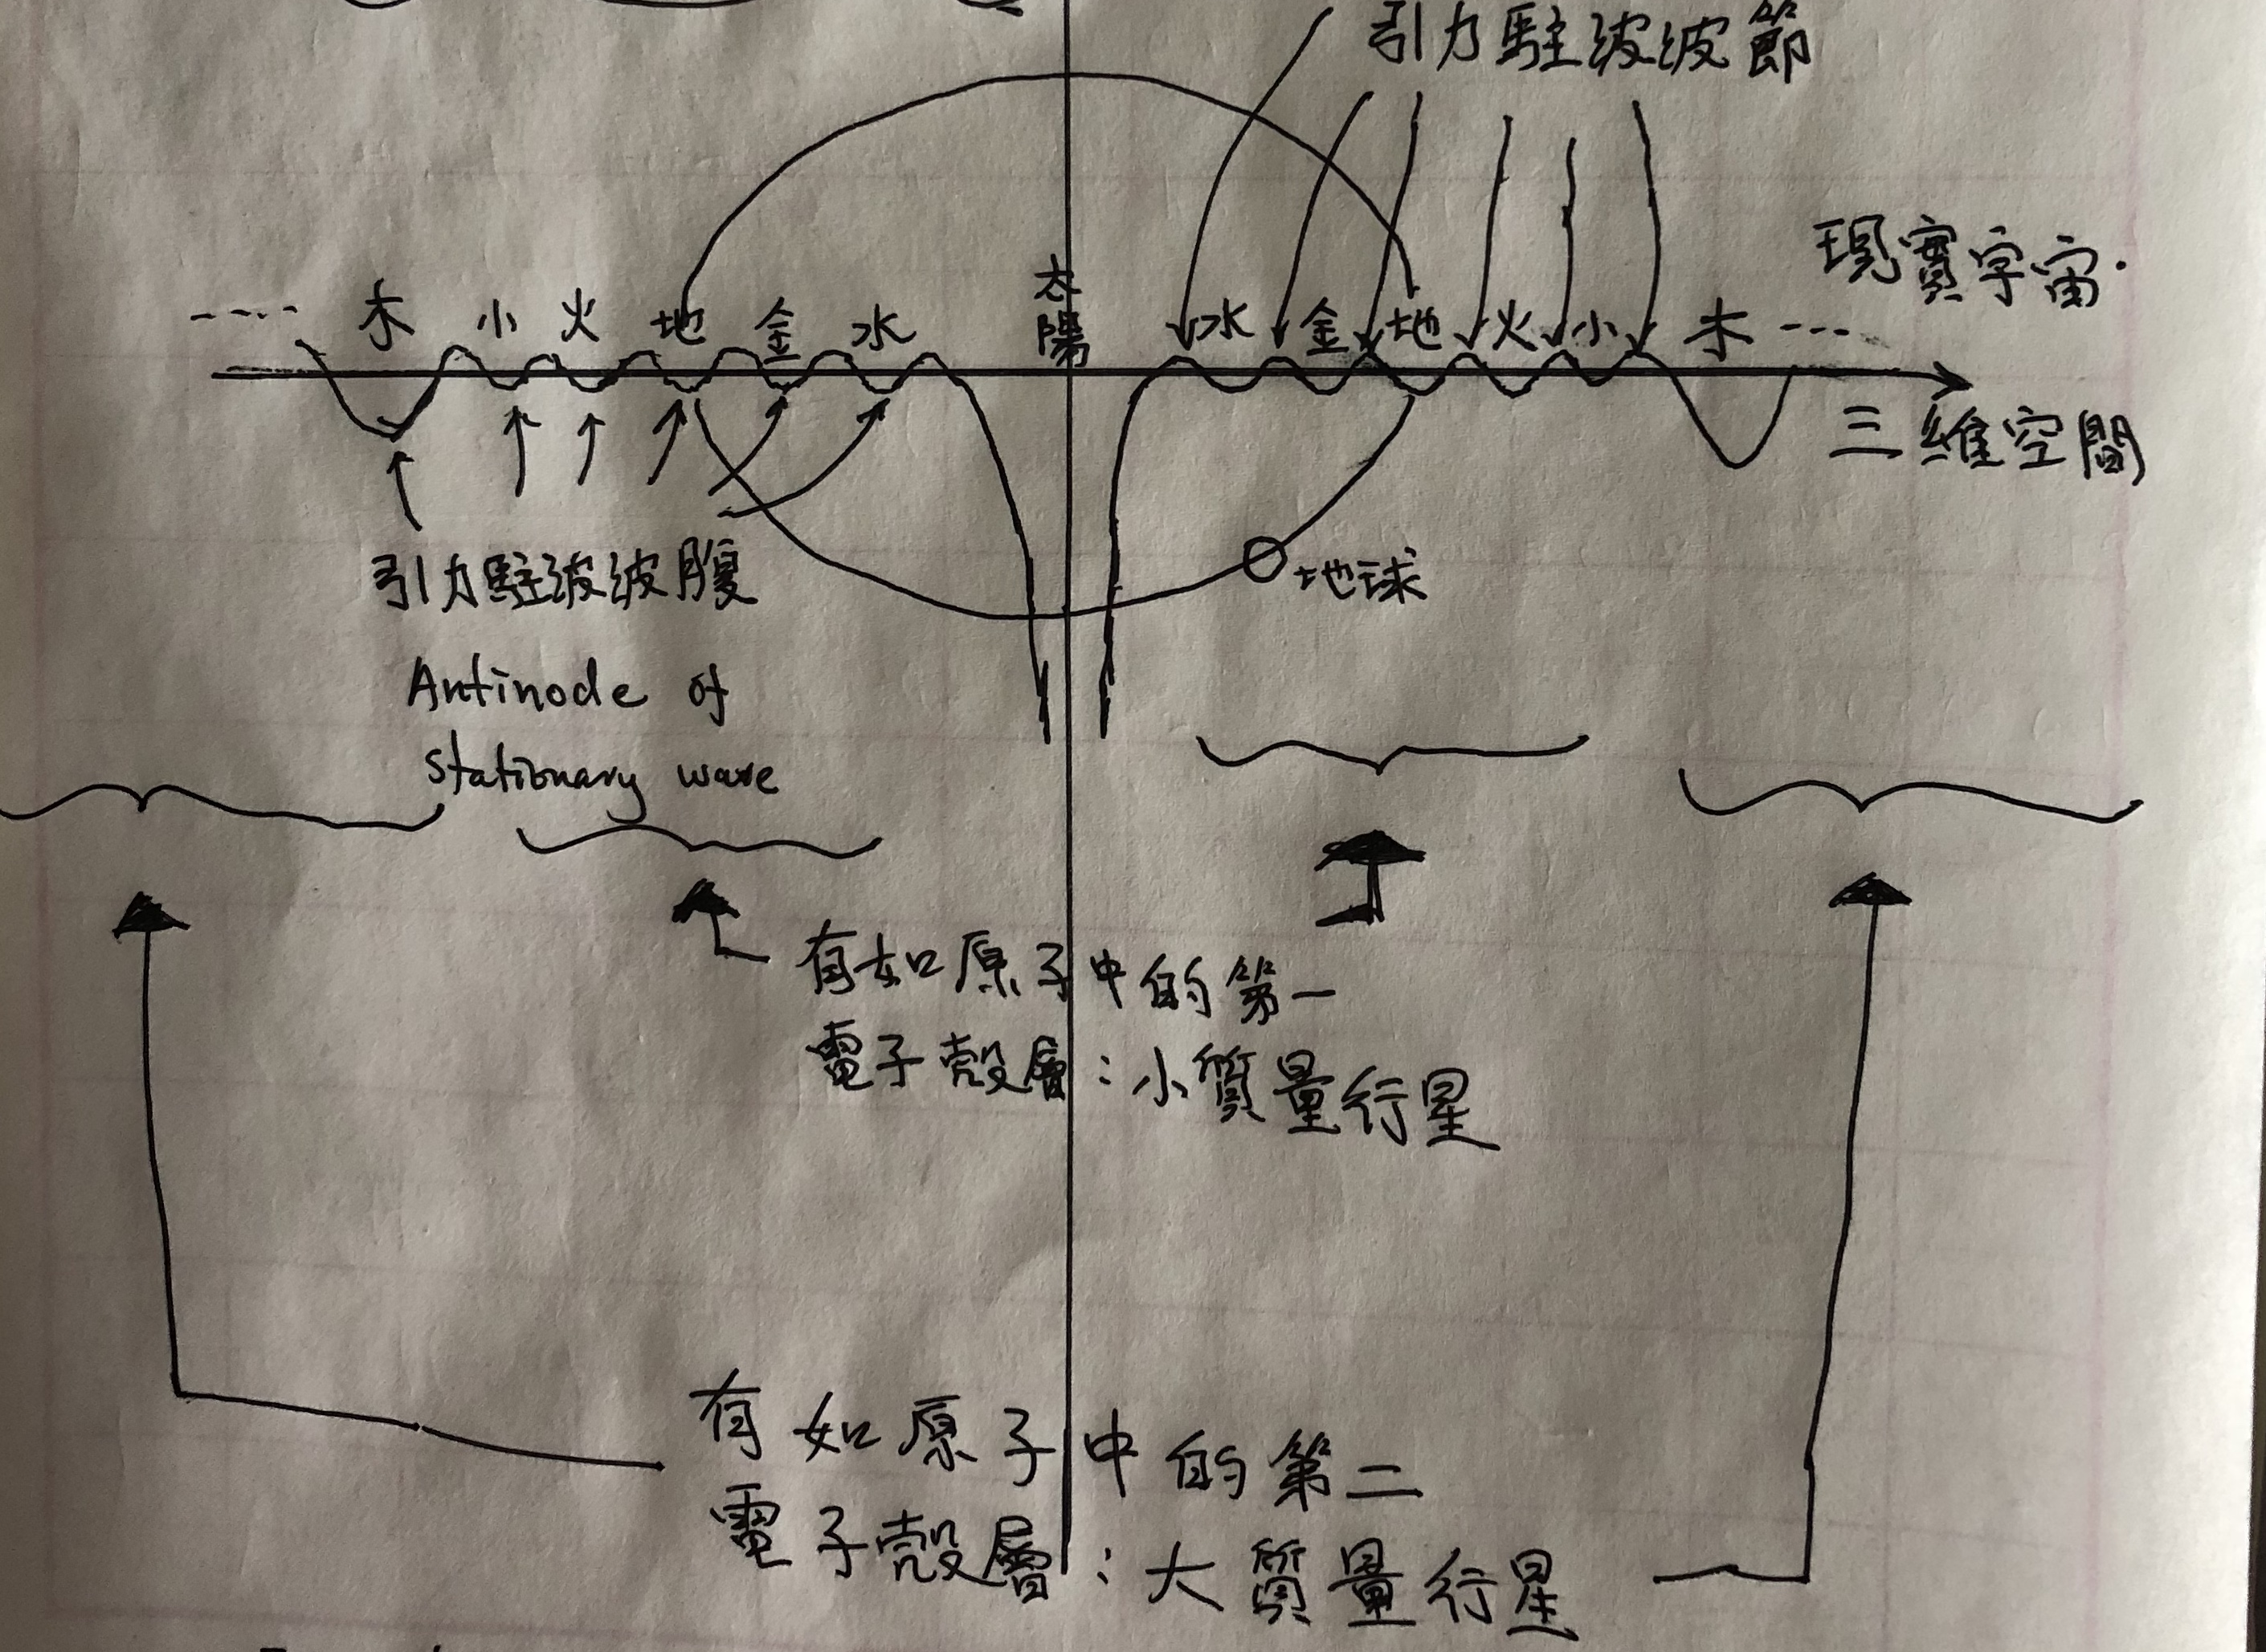 引力駐波波節
現實宇宙.
---- 木 小 火 地 金 水 太陽 水 金 地 火 小 木 ---
三維空間
引力駐波波腹
地球
Antinode of
stationary wave
有如原子中的第一
電子殼層:小質量行星
有如原子中的第二
電子殼層:大質量行星